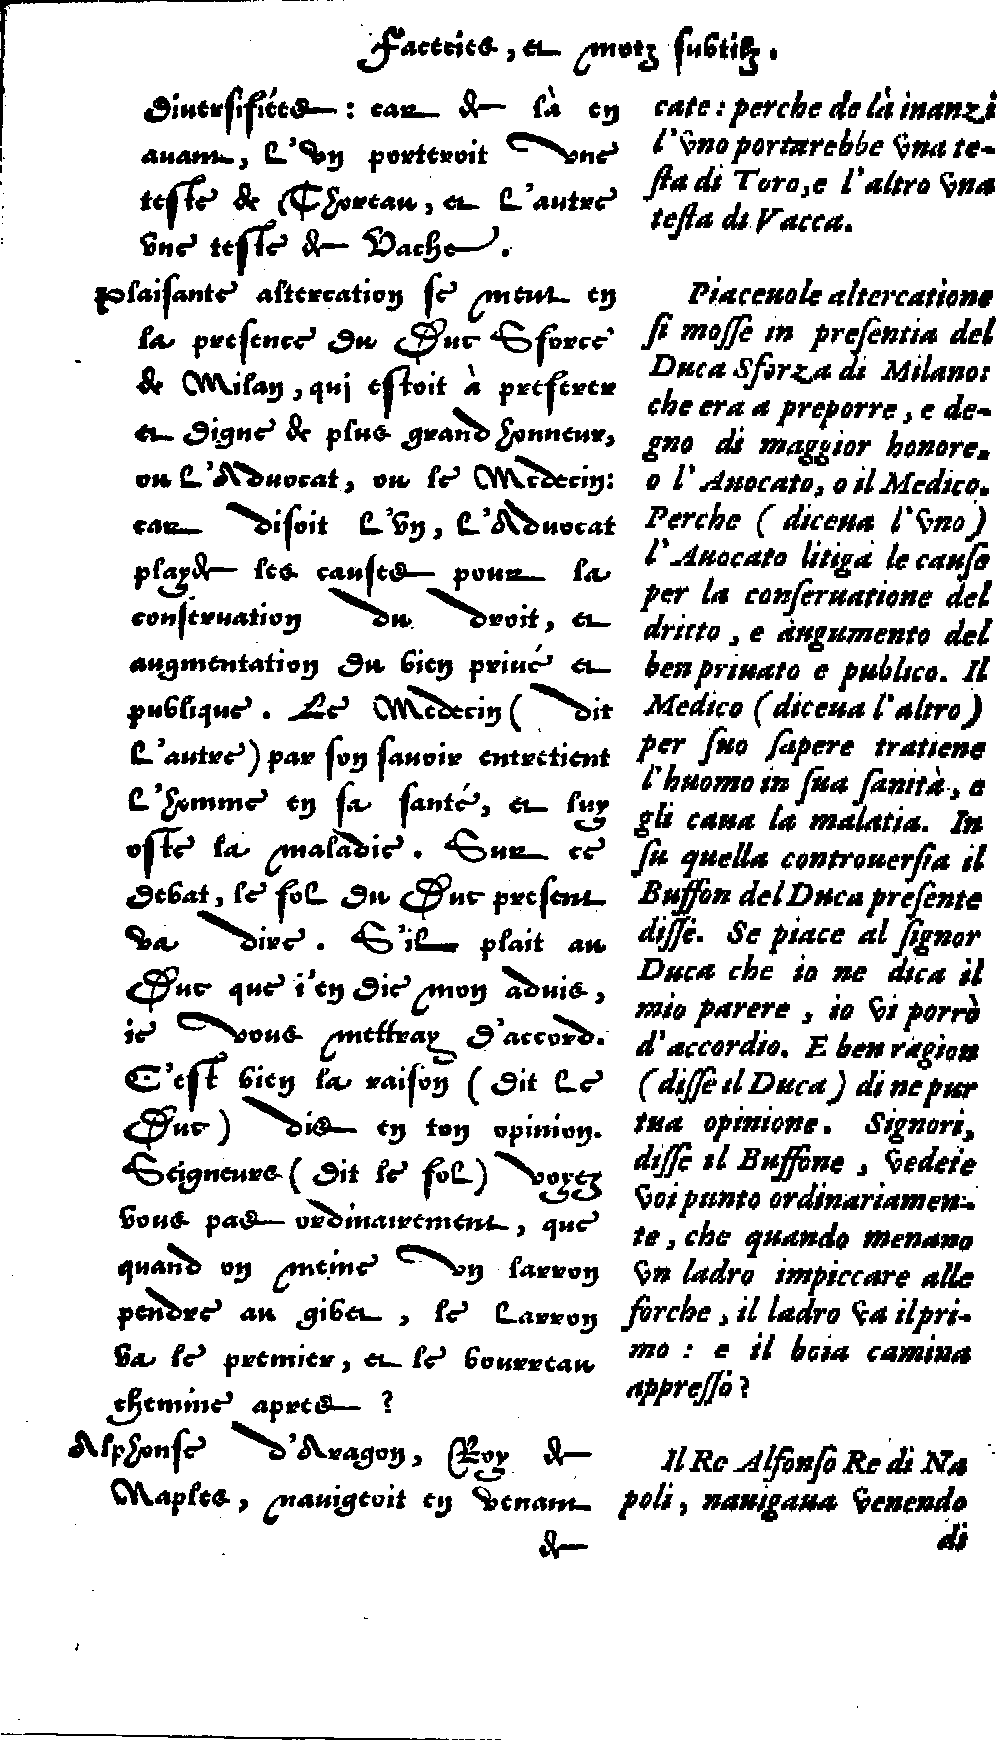 Faceties, et motz subtilz.
diuersifiées : car de là en
auant, l'vn porteroit vne
teste de Thoreau, et l'autre
vne teste de Vache.
Plaisante altercation se meut en
la presence du Duc Sforce
de Milan, qui estoit à preferer
et digne de plus grand honneur,
ou l'Aduocat, ou le Medecin:
car disoit l'vn, l'Aduocat
playde les causes pour la
conseruation du droit, et
augmentation du bien priué et
publique. Le Medecin ( dit
l'autre) par son sauoir entretient
l'homme en sa santé, et luy
oste la maladie. Sur ce
debat, le fol du Duc present
va dire. S'il plait au
Duc que i'en die mon aduis,
ie vous mettray d'accord.
C'est bien la raison ( dit le
Duc) dis en ton opinion.
Seigneurs ( dit le fol) voyez
vous pas ordinairement, que
quand on meine vn larron
pendre au gibet, le larron
va le premier, et le bourreau
chemine apres ?
Alphonse d'Aragon, Roy de
Naples, nauigeoit en venant
de
cate: perche de là inanzi
l'vno portarebbe vna te-
sta di Toro, e l'altro vna
testa di Vacca.
Piaceuole altercatione
si mosse in presentia del
Duca Sforza di Milano:
che era a preporre, e de-
gno di maggior honore.
o l'Auocato, o il Medico.
Perche ( diceua l'vno )
l'Auocato litiga le cause
per la conseruatione del
dritto, e augumento del
ben priuato e publico. Il
Medico ( diceua l'altro)
per suo sapere tratiene
l'huomo in sua sanità, e
gli caua la malatia. In
su quella controuersia il
Buffon del Duca presente
disse. Se piace al signor
Duca che io ne dica il
mio parere, io vi porrò
d'accordio. E ben ragion
( disse il Duca ) di ne pur
tua opinione. Signori,
disse il Buffone, vedete
voi punto ordinariamen-
te, che quando menano
vn ladro impiccare alle
forche, il ladro va il pri-
mo : e il boia camina
appresso?
Il Re Alfonso Re di Na
poli, nauigaua venendo
di